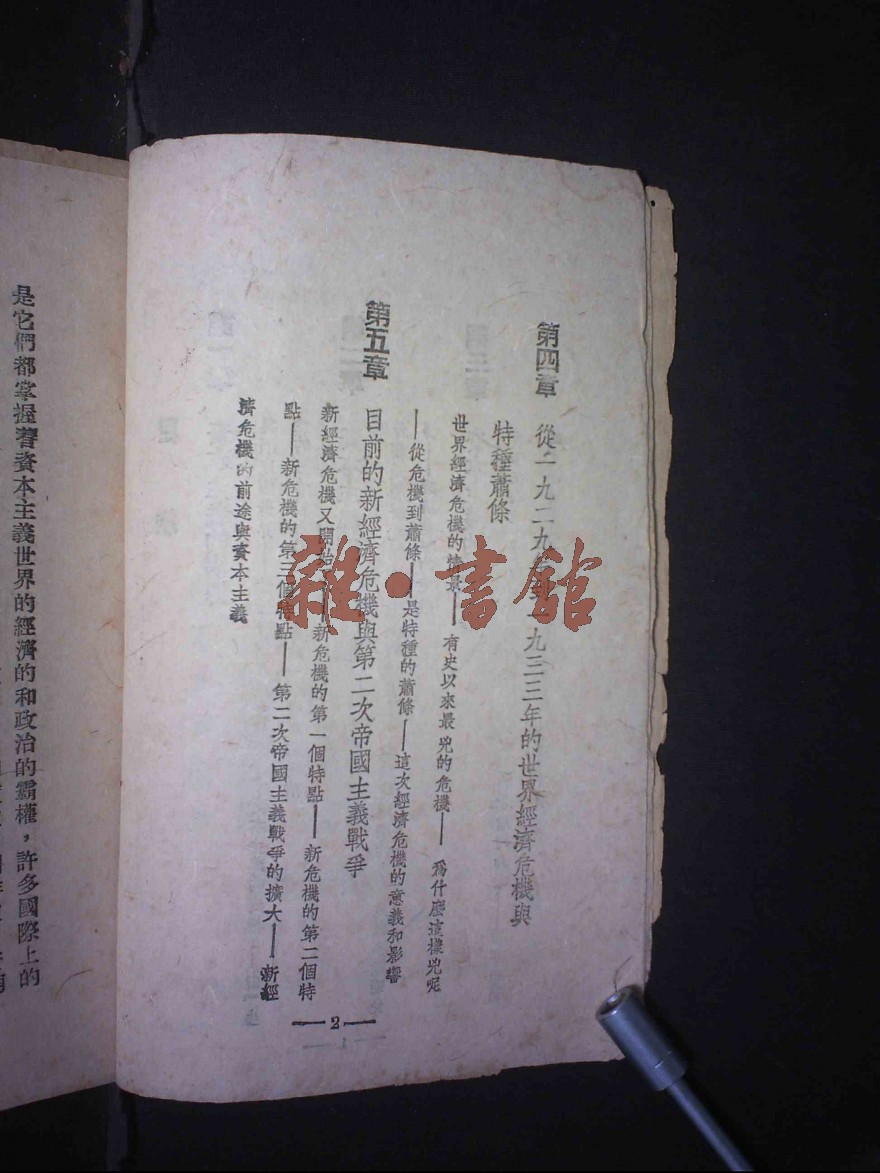 第四章 從一九二九年到一九三三年的世界經濟危機與
特種蕭條
世界經濟危機的情景——有史以來最兇的危機——爲什麼這樣兇呢
——從危機到蕭條——是特種的蕭條——這次經濟危機的意義和影響
第五章 目前的新經濟危機與第二次帝國主義戰爭
新經濟危機又開始——新危機的第一個特點——新危機的第二個特
點——新危機的第三個特點——第二次帝國主義戰爭的擴大——新經
濟危機的前途與資本主義
—2—
是它們都掌握着資本主義世界的經濟的和政治的霸權，許多國際上的
雜·書館